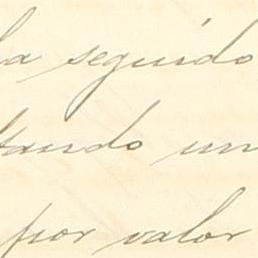 ha seguido
tando un
por valor